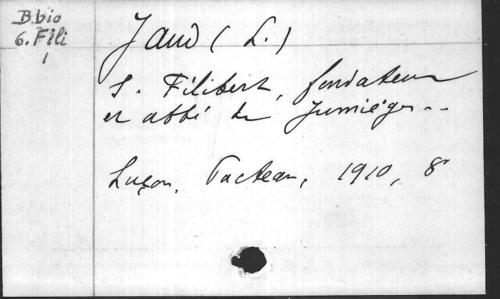 B.bio
6. Fili
1
Jaud (L.)
S. Filibert, fondateur
et abbé de Jumièges...
Luçon, Pacteau, 1910, 8°